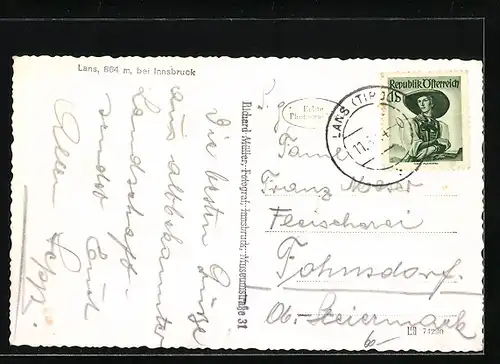 Lans, 864 m, bei Innsbruck
Die besten Grüße
aus altbekannter
Landschaft
sendet Euch
Allen Sepp.
Richard Müller, Fotograf, Innsbruck, Museumstraße 31
Echte
LANS (TIROL)
Republik Österreich
Fama
Franz Maier
Fleischerei
Fohnsdorf
Ob. Steiermark
6-
71290